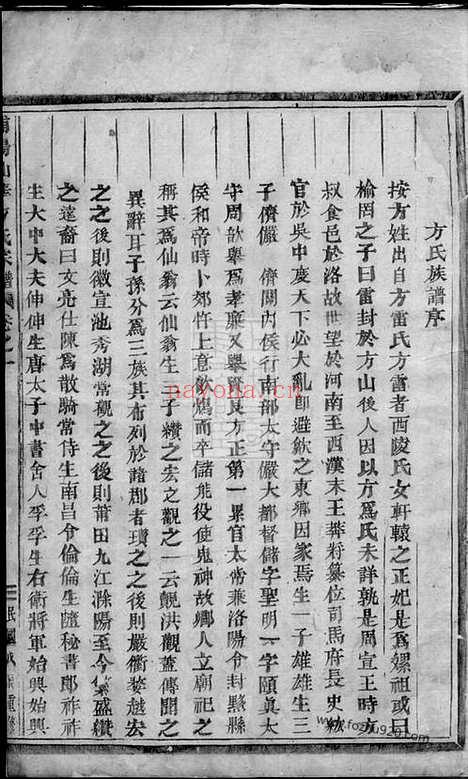 方氏族譜序
按方姓出自方雷氏方雷者西陵氏女軒轅之正妃是爲嫘祖或曰
榆罔之子曰雷封於方山後人因以方爲氏未詳孰是周宣王時方
叔食邑於洛故世望於河南至西漢末王莽將纂位司馬府長史紘
官於吳中度天下必大亂即避歙之東鄉因家焉生一子雄雄生三
子儕儼儕關內侯行南部太守儼大都督儲字聖明一字頤真太
守周歆舉爲孝廉又舉賢良方正第一累官太常兼洛陽令封黟縣
侯和帝時卜郊忤上意飲鴆而卒儲能役使鬼神故鄉人立廟祀之
稱其爲仙翁云仙翁生三子纘之宏之觀之一云覿洪觀蓋傳聞之
異辭耳子孫分爲三族其布列於諸郡者瓚之之後則嚴衢婺越宏
之之後則徽宣池秀湖常觀之之後則莆田九江滁陽至今繁盛纘
之遠裔曰文亮仕陳爲散騎常侍生南昌令倫倫生隨秘書郎祚祚
生大中大夫伸伸生唐太子中書舍人孚孚生右衛將軍始興始興
氏宗譜 卷之一
民國
重修
nayona.cn
www.fozu920.com